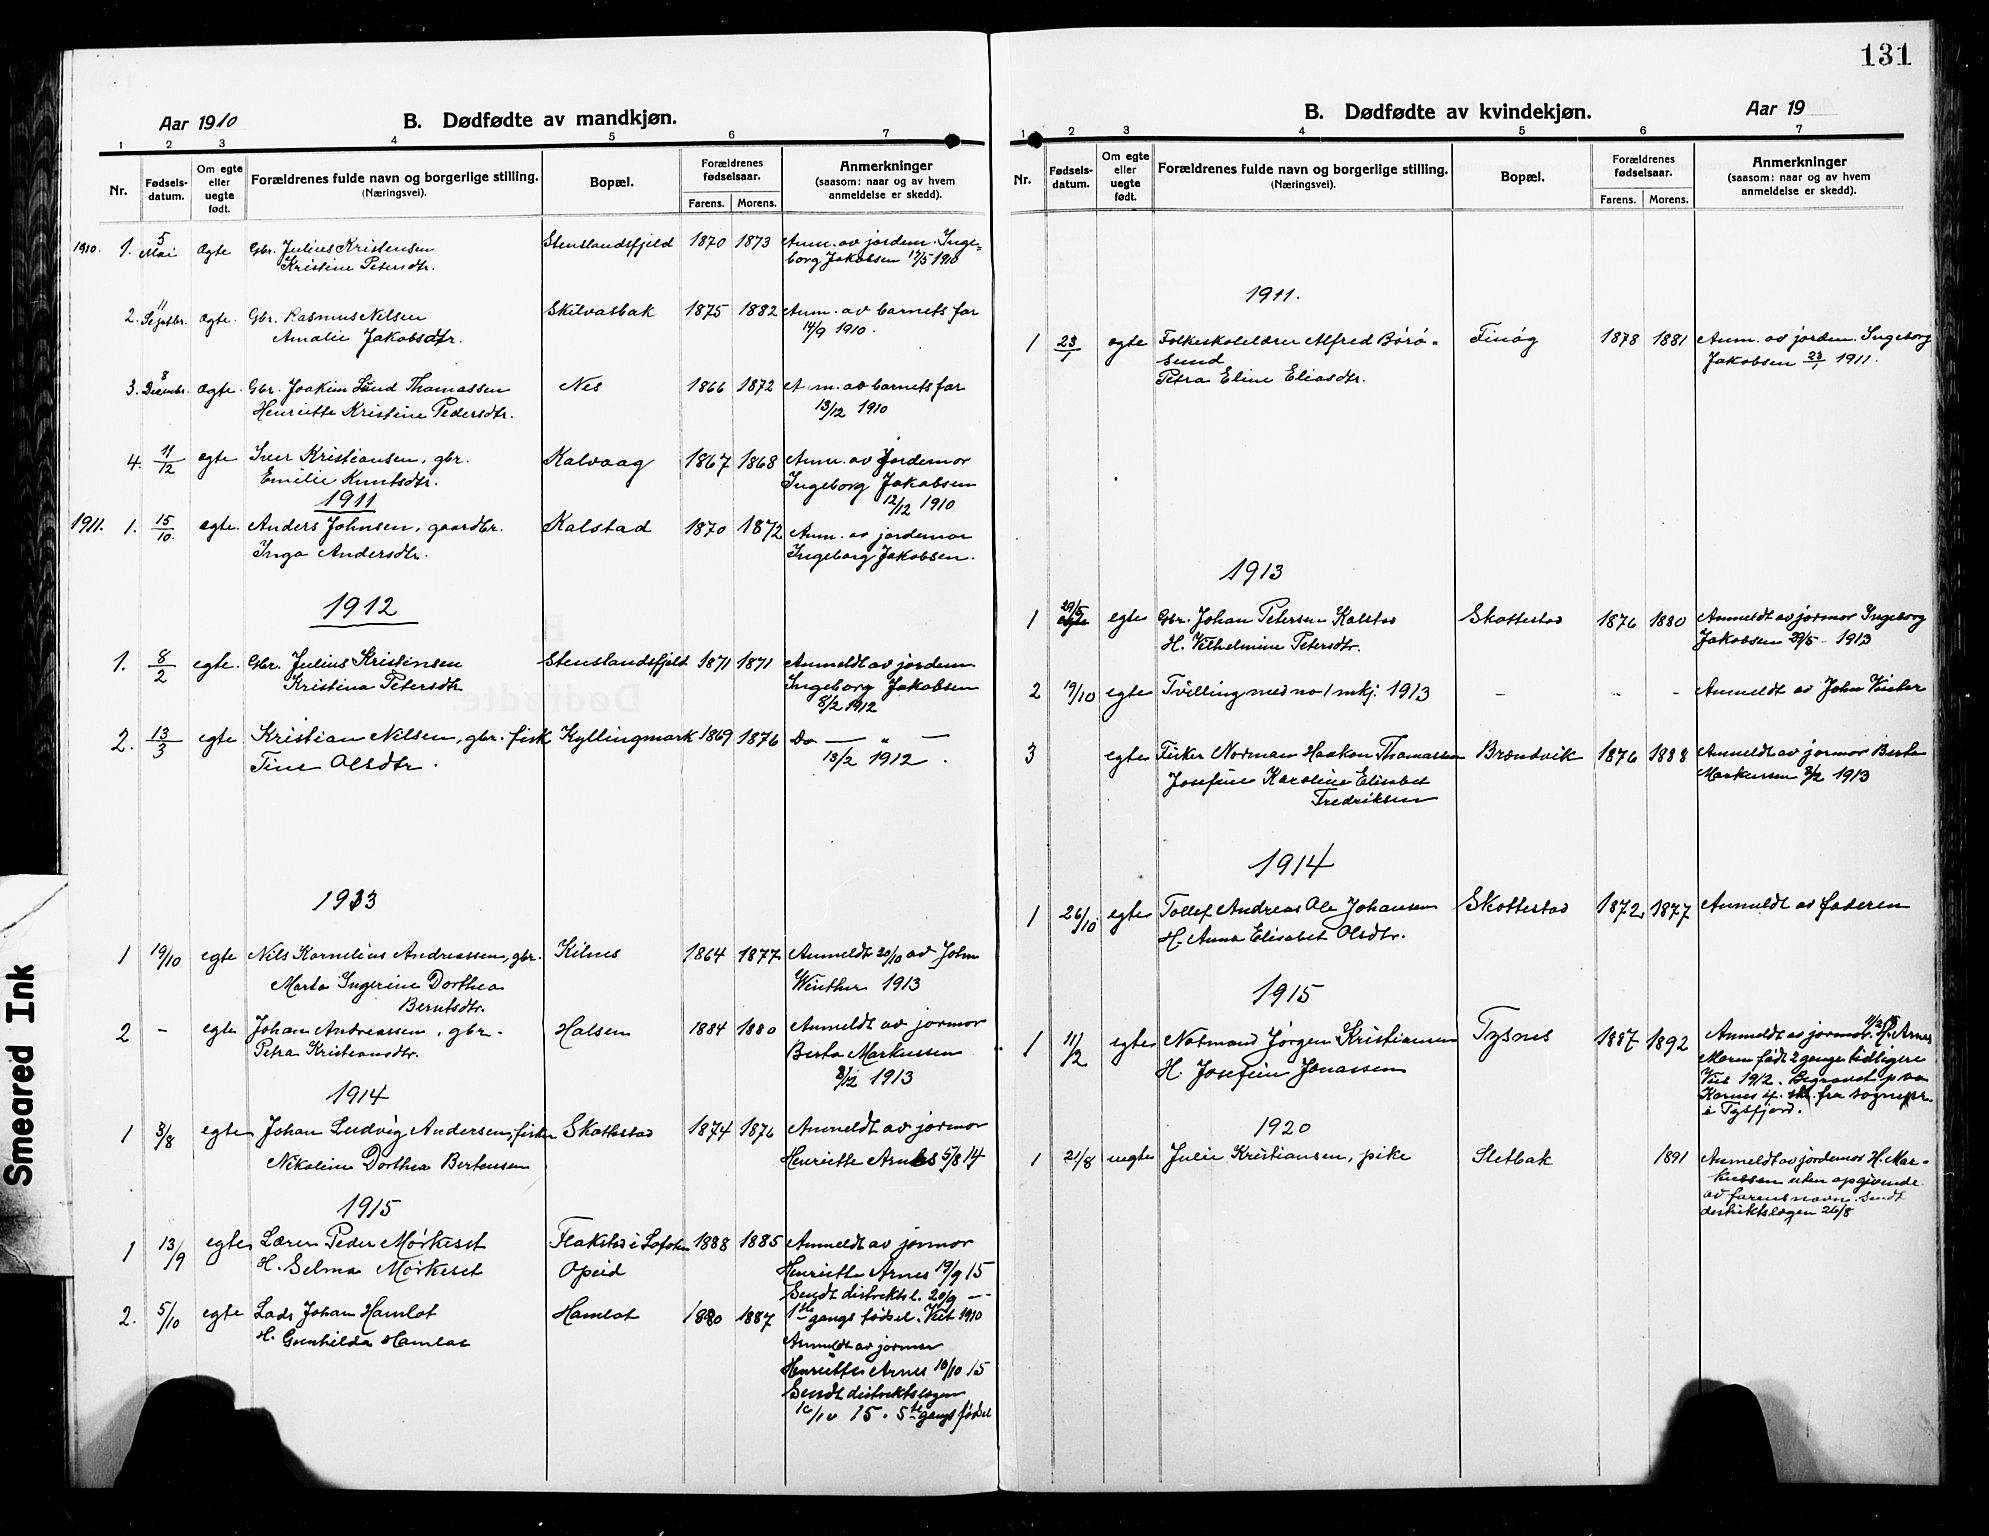 131
Aar 1910
B. Dødfødte av mandkjøn.
1 2 3 4 5 6 7
Nr.
Fødsels-
datum.
Om egte
eller
uegte
født.
Forældrenes fulde navn og borgerlige stilling.
(Næringsvei).
Bopæl.
Forældrenes
fødselsaar.
Farens. Morens.
Anmerkninger
(saasom: naar og av hvem
anmeldelse er skedd).
1910. 1. 5 Mai Ægte Gbr. Julius Kristensen Stenslandsfjeld 1870 1873 Anm. av jordem. Inge-
Kristine Petersdtr. borg Jakobsen 17/5 1910
2. 11 Septbr. Ægte. Gbr. Rasmus Nilsen Skilvasbak 1875 1882 Anm. av barnets far
Amalie Jakobsdtr. 14/9 1910.
3. 8 Decembr. Ægte Gbr. Joakim Lund Thomassen Nes 1866 1872 A m. av barnets far
Henriette Kristine Pedersdtr. 13/12 1910
4. 11/12 ægte Iver Kristiansen, gbr. Kalvaag 1867 1868 Anm. av Jordemor
Emilie Knutsdtr. Ingeborg Jakobsen
12/12 1910
1911
1911. 1. 15/10. ægte. Anders Johnsen, gaardbr. Kalstad 1870 1872 Anm. av jordemor
Inga Andersdtr. Ingeborg Jakobsen.
1912
1. 8/2 egte. Gbr. Julius Kristensen Stenslandsfjeld 1871 1871 Anmeldt av jordem
Kristina Petersdtr Ingeborg Jakobsen
8/2 1912
2. 13/3 egte Kristian Nilsen, gbr. fisk Kyllingmark 1869 1876 Do — „ —
Tine Olsdtr. 13/2 1912.
1913
1 19/10 egte Nils Kornelius Andreassen, gbr. Kilnes 1864 1877 Anmeldt 20/10 av John
Marta Ingerine Dorthea Winther 1913
Berntsdtr.
2 - egte Johan Andreassen, gbr. Halsen 1884 1880 Anmeldt av jormor
Petra Kristiansdtr. Berta Markussen
3/12 1913
1914
1 3/8 egte Johan Ludvig Andersen, fisker Skottestad 1874 1876 Anmeldt av jormor
Nikoline Dorthea Bertensen Henriette Arnes 5/8 14
1915
1 13/9 egte Lærer Peder Mørkeset Flakstad i Lofoten 1888 1885 Anmeldt av jormor
H. Selma Mørkeset Opeid Henriette Arnes 19/9 15
Sendt distriktsl. 20/9 —
2. 5/10 egte Lads Johan Hamlot Hamlot 1880 1887 1ste gangs fødsel. Viet 1910
H. Gunhilda Hamlot Anmeldt av jormor
Henriette Arnes 10/10 15
Sendt distriktslægen
10/10 15. 5te gangs fødsel
Aar 19
B. Dødfødte av kvindekjøn.
1 2 3 4 5 6 7
Nr.
Fødsels-
datum.
Om egte
eller
uegte
født.
Forældrenes fulde navn og borgerlige stilling.
(Næringsvei).
Bopæl.
Forældrenes
fødselsaar.
Farens. Morens.
Anmerkninger
(saasom: naar og av hvem
anmeldelse er skedd).
1911.
1 23/1 ægte Folkeskolelærer Alfred Børø- Finøg 1878 1881 Anm. av jordem. Ingeborg
sund Jakobsen 23/1 1911.
Petra Eline Eliasdtr.
1913
1 29/5 egte Gbr. Johan Petersen Kalstad Skottestad 1876 1880 Anmeldt av jormor Ingeborg
H. Vilhelmine Petersdtr. Jakobsen 29/5 1913
2 19/10 egte Tvilling med no 1 mkj. 1913 - - - Anmeldt av John Vinter
3 egte Fisker Norman Haakon Thomassen Brændvik 1876 1888 Anmeldt av jormor Berta
Josefine Karoline Elisabet Markussen 3/12 1913
Fredriksen
1914
1 26/10 egte Tollef Andreas Ole Johansen Skottestad 1872 1877 Anmeldt av faderen
H. Anna Elisabet Olsdtr.
1915
1 11/2 egte Notmand Jørgen Kristiansen Tysnes 1887 1892 Anmeldt av jormor H. Arnes
H. Josefine Jonassen Moren født 2 gange tidligere
Viet 1912. Begravet paa
Korsnes fra sognepr.
i Tysfjord.
1920
1 21/8 uegte Julie Kristiansen, pike Sletbak 1891 Anmeldt av jordemor H. Mar-
kussen uten opgivende
av farens navn. Sendt
distriktslægen 26/8
Smeared Ink